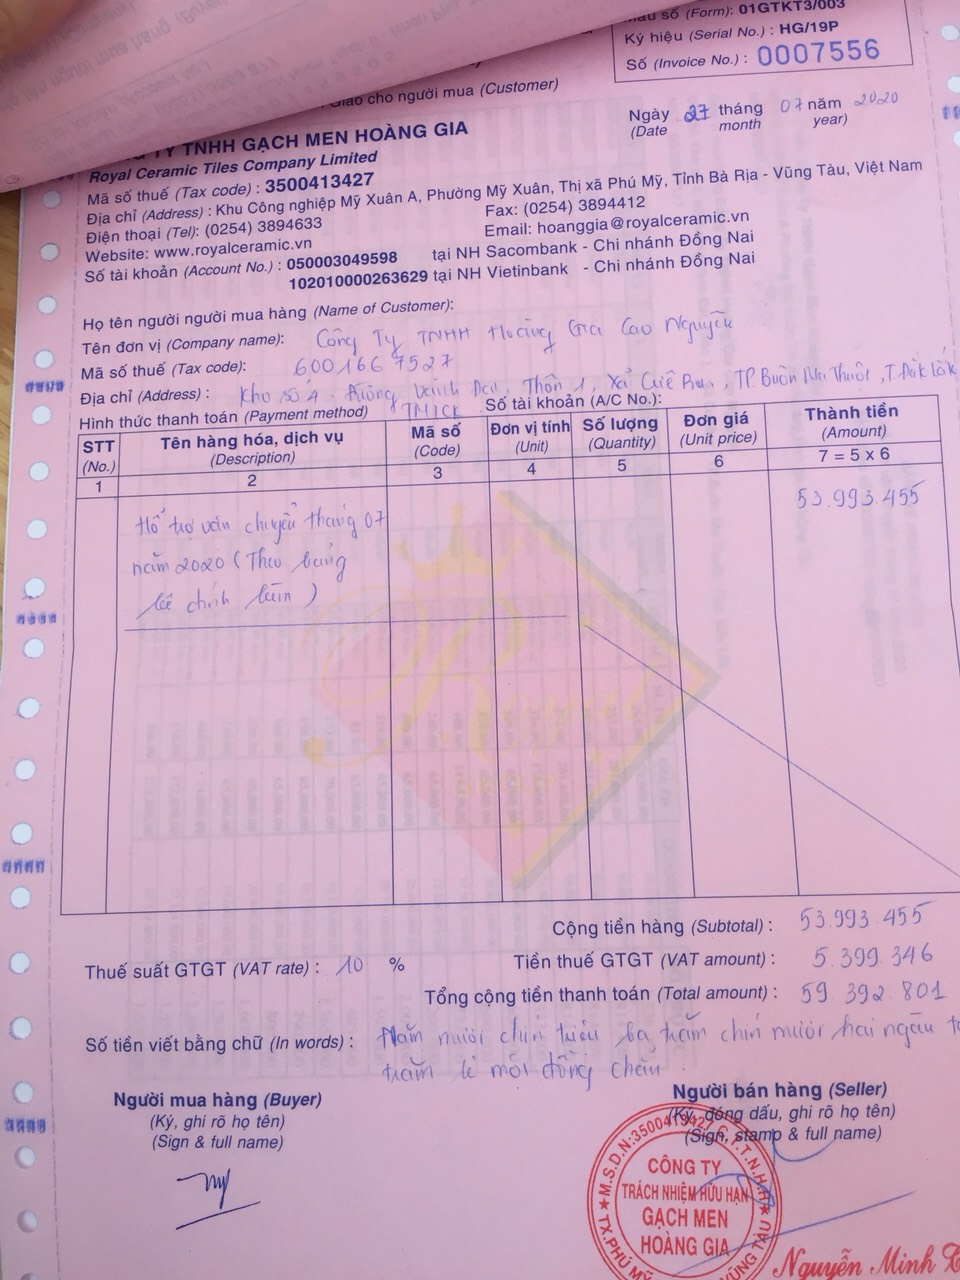 Mẫu số (Form): 01GTKT3/003
Ký hiệu (Serial No.) : HG/19P
Số (Invoice No.) : 0007556
Giao cho người mua (Customer)
Ngày 27 tháng 07 năm 2020
(Date month year)
TY TNHH GẠCH MEN HOÀNG GIA
Royal Ceramic Tiles Company Limited
Mã số thuế (Tax code) : 3500413427
Địa chỉ (Address) : Khu Công nghiệp Mỹ Xuân A, Phường Mỹ Xuân, Thị xã Phú Mỹ, Tỉnh Bà Rịa - Vũng Tàu, Việt Nam
Điện thoại (Tel): (0254) 3894633 Fax: (0254) 3894412
Website: www.royalceramic.vn Email: hoanggia@royalceramic.vn
Số tài khoản (Account No.) : 050003049598 tại NH Sacombank - Chi nhánh Đồng Nai
102010000263629 tại NH Vietinbank - Chi nhánh Đồng Nai
Họ tên người người mua hàng (Name of Customer):
Tên đơn vị (Company name): Công Ty TNHH Hoàng Gia Cao Nguyên
Mã số thuế (Tax code): 6001667527
Địa chỉ (Address) : Kho số 4, Đường Vành Đai, Thôn 1, Xã Cuê Bua, TP Buôn Ma Thuột, T Đắk Lắk
Hình thức thanh toán (Payment method) TM/CK Số tài khoản (A/C No.):
STT Tên hàng hóa, dịch vụ Mã số Đơn vị tính Số lượng Đơn giá Thành tiền
(No.) (Description) (Code) (Unit) (Quantity) (Unit price) (Amount)
1 2 3 4 5 6 7 = 5 x 6
Hỗ trợ vận chuyển tháng 07 53.993.455
năm 2020 (Theo bảng
kê đính kèm)
Royal
Cộng tiền hàng (Subtotal) : 53.993.455
Thuế suất GTGT (VAT rate) : 10 % Tiền thuế GTGT (VAT amount) : 5.399.346
Tổng cộng tiền thanh toán (Total amount) : 59.392.801
Số tiền viết bằng chữ (In words) : Năm mươi chín triệu ba trăm chín mươi hai ngàn
trăm lẻ một đồng chẵn
Người mua hàng (Buyer) Người bán hàng (Seller)
(Ký, ghi rõ họ tên) (Ký, đóng dấu, ghi rõ họ tên)
(Sign & full name) (Sign, stamp & full name)
M.S.D.N:3500413427-C.T.T.N.H.H
CÔNG TY
TRÁCH NHIỆM HỮU HẠN
GẠCH MEN
HOÀNG GIA
TX.PHÚ MỸ VŨNG TÀU
Nguyễn Minh